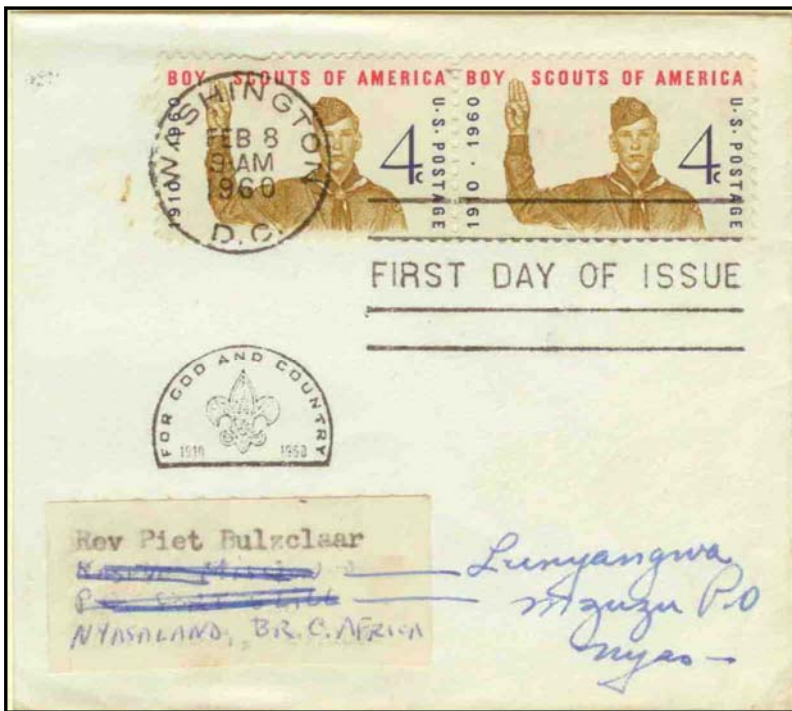 BOY SCOUTS OF AMERICA
1910 · 1960
4c
U.S. POSTAGE
BOY SCOUTS OF AMERICA
1910 · 1960
4c
U.S. POSTAGE
WASHINGTON
FEB 8
9-AM
1960
D.C.
FIRST DAY OF ISSUE
FOR GOD AND COUNTRY
1910 1960
Rev Piet Bulzclaar
NYASALAND, BR. C. AFRICA
Lunyangwa
Mzuzu P.O
Nyas-